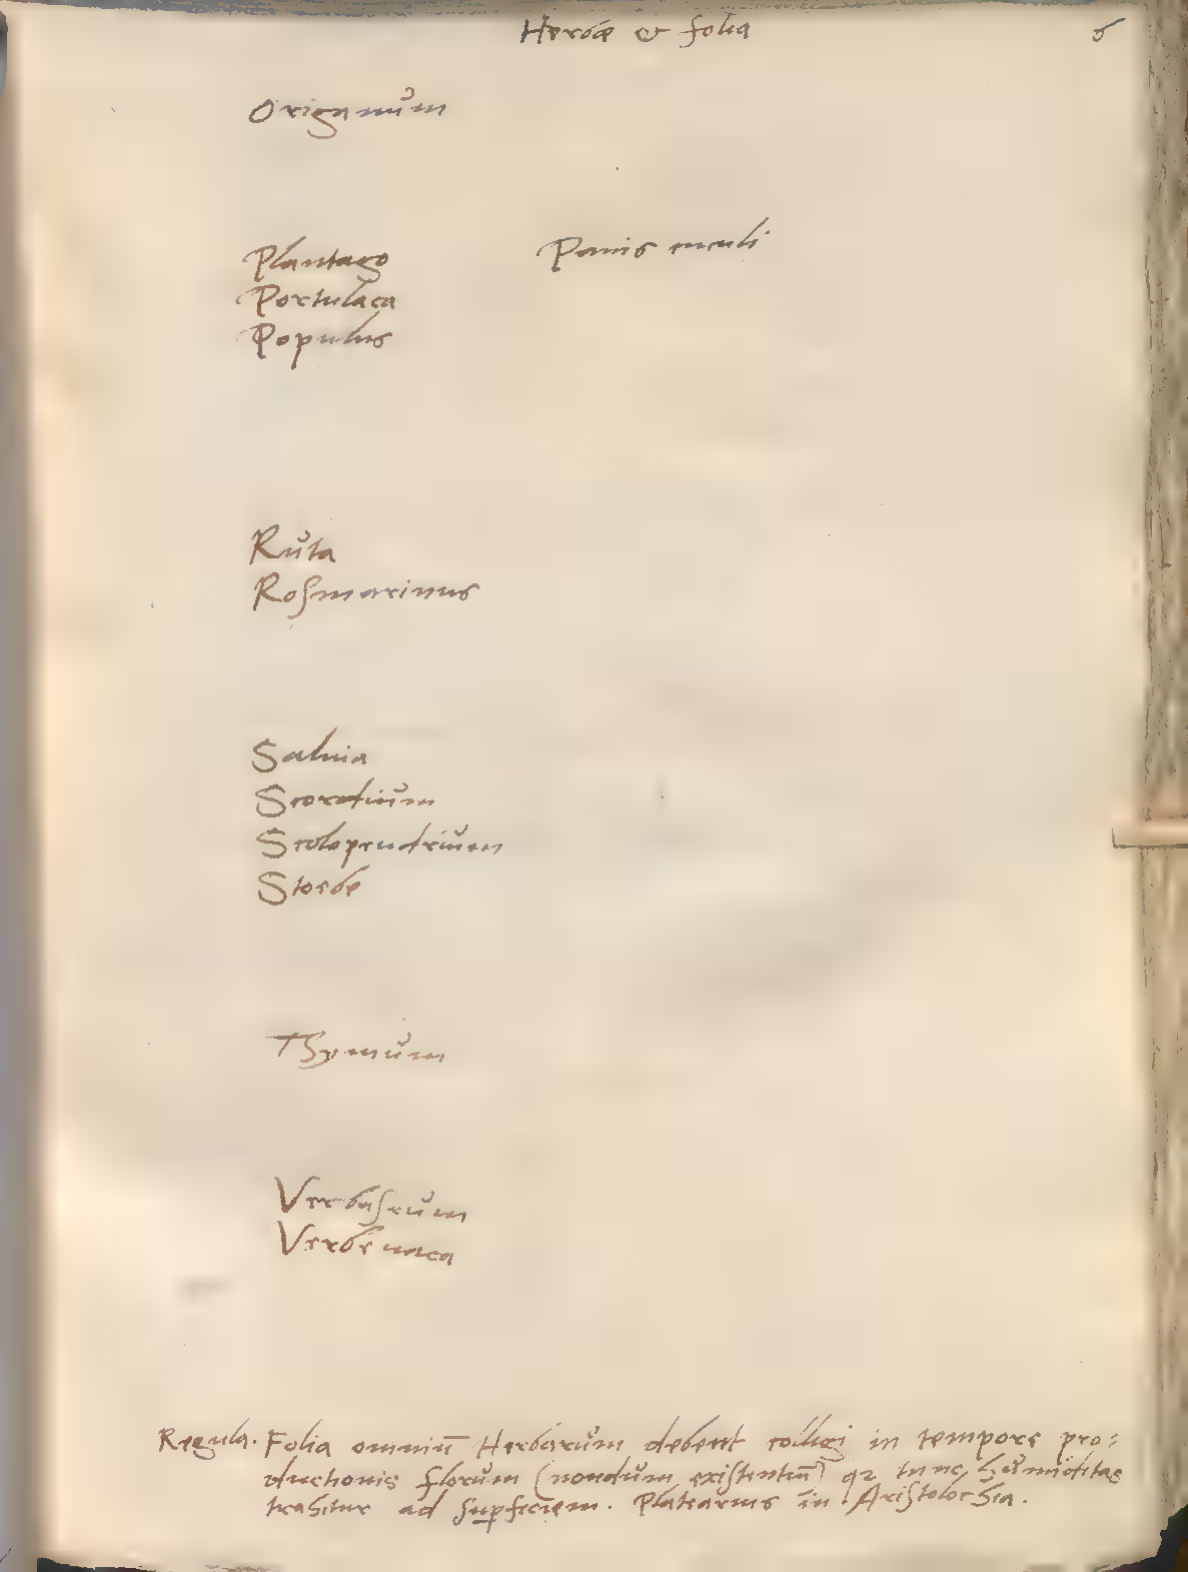 Herbæ & folia 6
Origanum
Plantago Panis cuculi
Portulaca
Populus
Ruta
Rosmarinus
Saluia
Scordium
Scolopendrium
Stoebe
Thymum
Verbascum
Verbenaca
Regula. Folia omniū Herbarum debent colligi in tempore pro:
ductionis florum (nondum existentiū) qz tunc humiditas
trahitur ad supficiem. Platearius in Aristolochia.